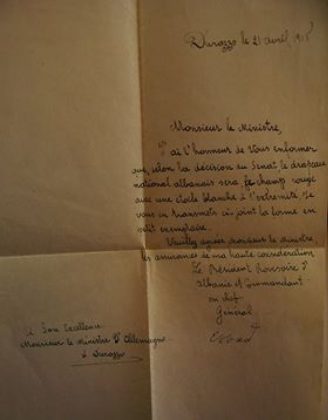 Durazzo le 21 avril, 191
Monsieur le Ministre,
J'ai l'honneur de Vous enformer
que, selon la décision du Senat le drapeau
national albanais sera, champ rouge
avec une étoile blanche à l'extremité. Je
vous en transmets ci-joint la forme en
petit exemplaire.
Veuillez agréer Monsieur le ministre
les assurances de ma haute consideration.
Le President Provoire d'
Albanie et Commandant
en chef
Général
Essad
à Son Excellence
Monsieur le Ministre d'Allemagne
à Durazzo